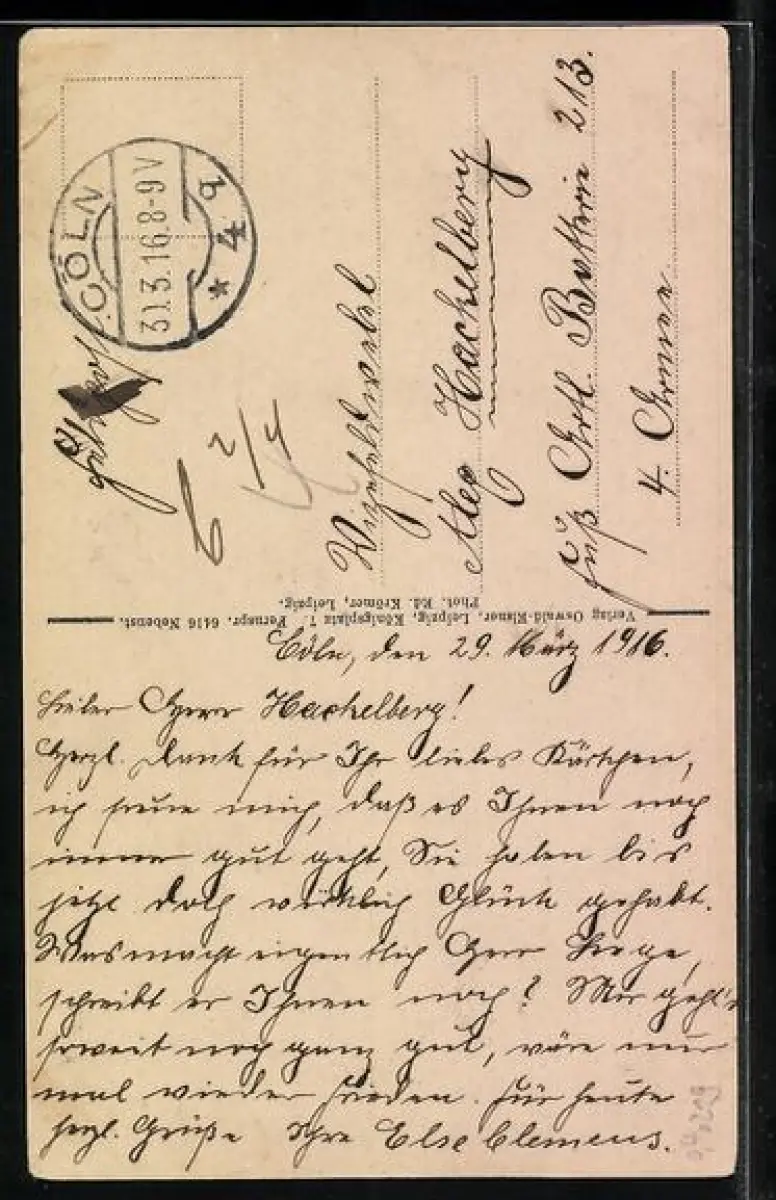 CÖLN
31.3.16 8-9 V
* 4 q
2/4
Vizefeldwebel
Hackelberg
Fuß Artl. Batterie 213.
4. Armee
Verlag Oswald-Klauer, Leipzig, Königsplatz 7. Fernspr. 6416 Nebenst.
Phot. Ed. Krömer, Leipzig.
Cöln, den 29. März 1916.
Lieber Herr Hackelberg!
Herzl. Dank für Ihr liebes Kärtchen,
ich freue mich, daß es Ihnen noch
immer gut geht, Sie haben bis
jetzt doch wirklich Glück gehabt.
Was macht eigentlich Herr
schreibt er Ihnen noch? Mir geht's
soweit noch ganz gut, wäre nur
mal wieder Frieden. Für heute
herzl. Grüße Ihre Else Clemens.